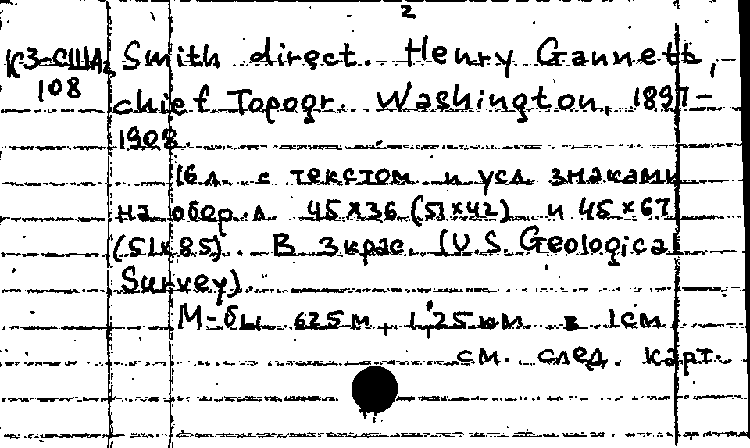 2
К3-США Smith direct. Henry Gannett,
108 chief Topogr. Washington, 1897-
1908.
16 л. с текстом и усл. знаками
на обор. л. 45x36 (51x42) и 45x67
(51x85). В 3 крас. (U.S. Geological
Survey).
М-бы 625 м, 1,25 км в 1 см
см. след. карт.